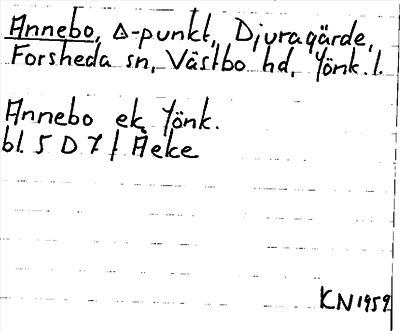 Annebo, Δ-punkt, Djuragärde,
Forsheda sn, Västbo hd, Jönk. l.
Annebo ek. Jönk.
bl. 5 D 7 f Åeke
KN 1959